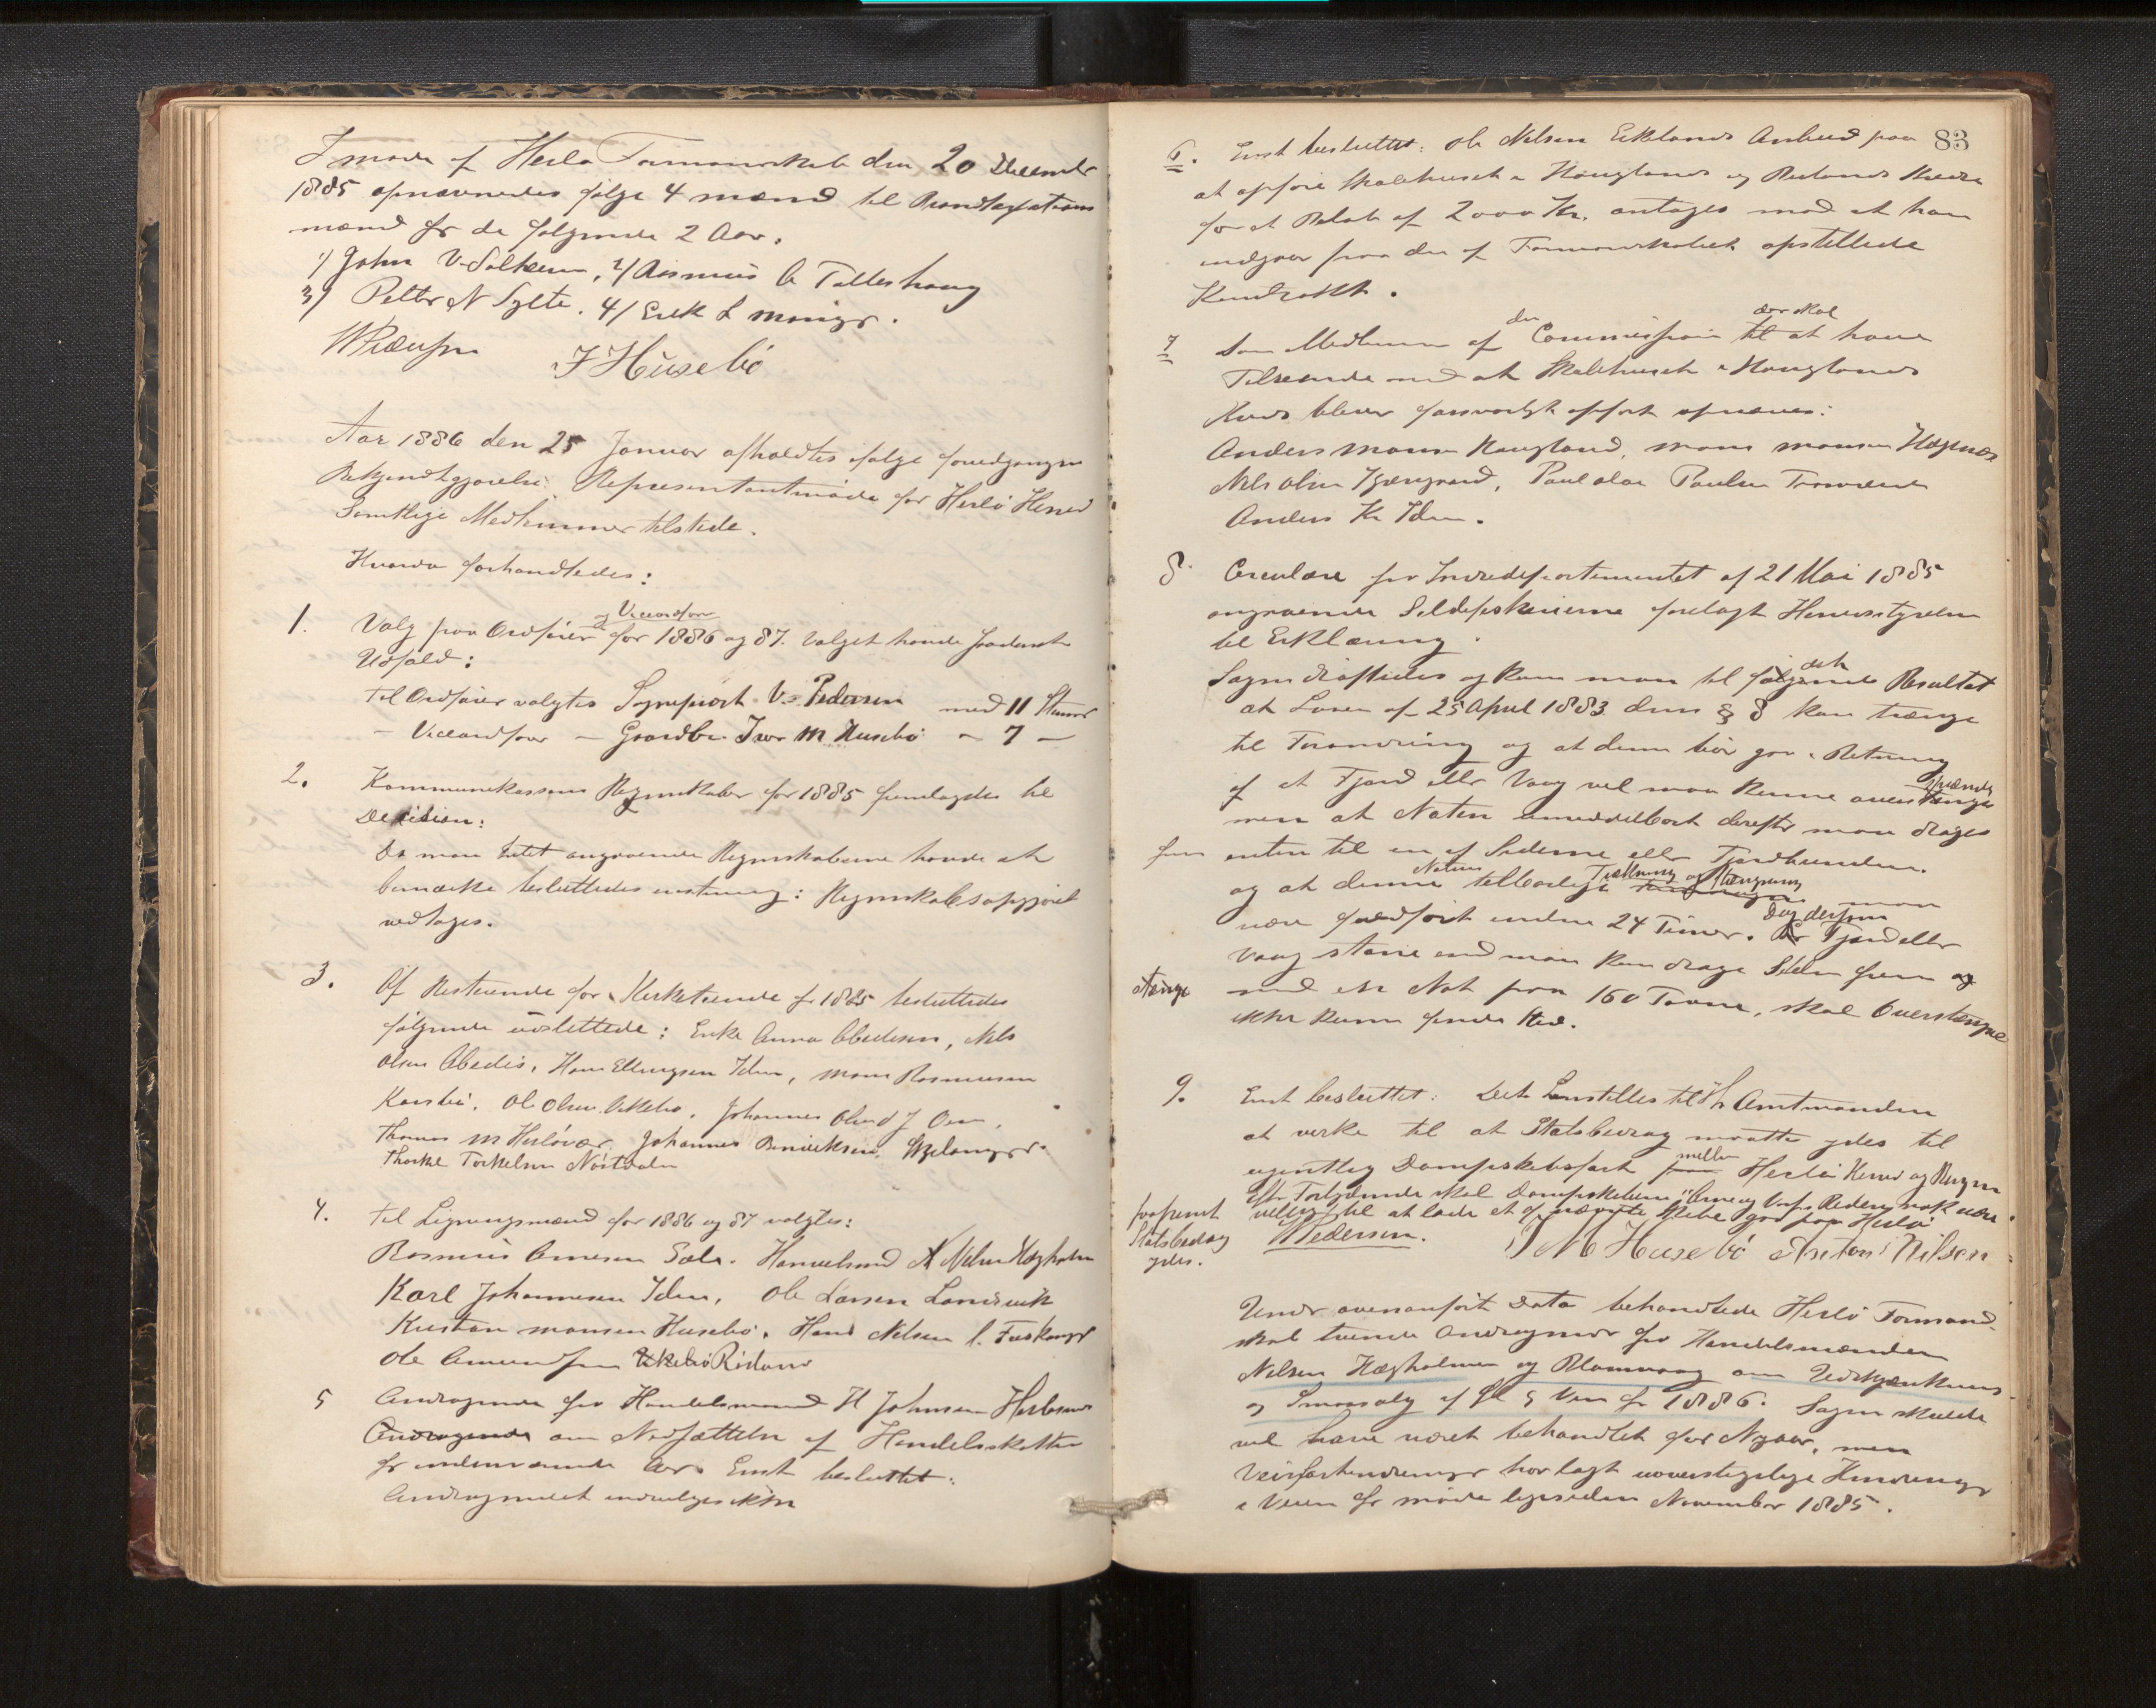 I møde af Herlø Formandskab den 20 December
1885 opnævnedes følge 4 mænd til Brandtaxations
mænd for de følgende 2 Aar.
1/ John V. Solheim, 2/ Rasmus A Telleshaug
3/ Petter N Sylte. 4/ Erik L Monger.
W Pedersen J Husebö
Aar 1886 den 25 Januar afholdtes ifølge foredgangen
Bekjendtgjørelse Representantmøde for Herlö Herred
Samtlige Medlemmer tilstede.
Hvorda forhandledes:
1. Valg paa Ordfører og Viceordfører for 1886 og 87. Valget havde saadant
Udfald:
Til Ordfører valgtes Sogneprest V. Pedersen med 11 Stemmer
- Viceordfører - Gaardbr. Iver M Husebö - 7 -
2. Kommunekassens Regnskaber for 1885 fremlagdes til
Decision:
Da man Intet angaaende Regnskaberne havde at
bemærke besluttedes enstemmig: Regnskabsopgjøret
vedtages.
3. Af Resterende for Kirketiende for 1885 besluttedes
følgende udslettede: Enke Anna Abedisen, Nils
Olsen Abedis, Hans Ellingsen Iden, Mons Rasmussen
Ole Olsen Vikebø. Johannes Olsen
Thomas M Herløvær, Johannes
Thorkel Torkelsen
4. Til Ligningsmænd for 1886 og 87 valgtes:
Rasmus Arnesen Sæle. Handelsmd N Nilsen Hægholm
Karl Johannesen Iden, Ole Larsen Landsvik
Kristian Monsen Husebø. Hans Nilsen l. Foskanger
Ole Amundsen
5 Andragende fra Handelsmand H Johnsen Herløsund
Andragende om Nedsættelse af Handelsskatten
for indeværende Aar. Enst besluttet:
Andragendet indvilges ikke
83
6. Enst besluttet: Ole Nilsen Eiklands Anbud paa
at opføre Skolehuset i Hauglands og Reilands Kreds
for et Beløb af 2000 Kr. antages mod at han
indgaar paa den af Formandskabet opstillede
Kontrakt.
7 Som Medlemm af den Commission der skal til at have
Tilseende med at Skolehuset i Hauglands
Kreds bliver forsvarligt opført opnævnes:
Anders Monsen Haugland, Mons Monsen Hægnæs
Nils Olsen Kjærgaard, Paul Olai Paulsen
Anders K Iden.
8. Circulære fra Indredepartementet af 21 Mai 1885
angaaende Sildefiskerierne forelagt Herredsstyrelsen
til Erklæring.
Sagen drøftedes og kom man til følgende det Resultat
at Loven af 25 April 1883 dens § 8 kan trænge
til Forandring og at denne bör gaa i Retning
af at Fjord eller Vaag vel maa kunne overstænges spændes
men at Noten umiddelbart derefter maa drages
frem enten til en af Siderne eller Fjordbunden.
og at denne Notens tilbørlige Trækning og Stængning maa
være fuldført inden 24 Timer. Dog dersom Er Fjord eller
Vaag større end man kan drage Silden frem og
stænge med en Not paa 160 Favne, skal Overstængsel
ikke kunne finde Sted.
9. Enst besluttet: Det henstilles til Hr Amtmanden
at virke til at Statsbedrag maatte ydes til
ugentlig Dampskibsfart fra mellem Herlø Herred og Bergen
Efter Forlydende skal Dampskibene "Arne og Vaags Rederi nok være
villig til at lade et af nævnte Skibe gaa paa Herlø
forsaavidt Statsbedrag ydes.
W Pedersen. I M Husebö Anton Nilsen
Under ovenanført Dato behandlede Herlø Formand-
skab tvende Andragender fra Handelsmændene
Nilsen Hægholmen og Blomvaag om Udskjænknings
og Smaasalg af Øl & Vin for 1886. Sagen skulde
vel have været behandlet før Nytaar, men
Veirforhindringer har lagt uoverstigelige Hindringer
i Veien for møde ligesiden November 1885.